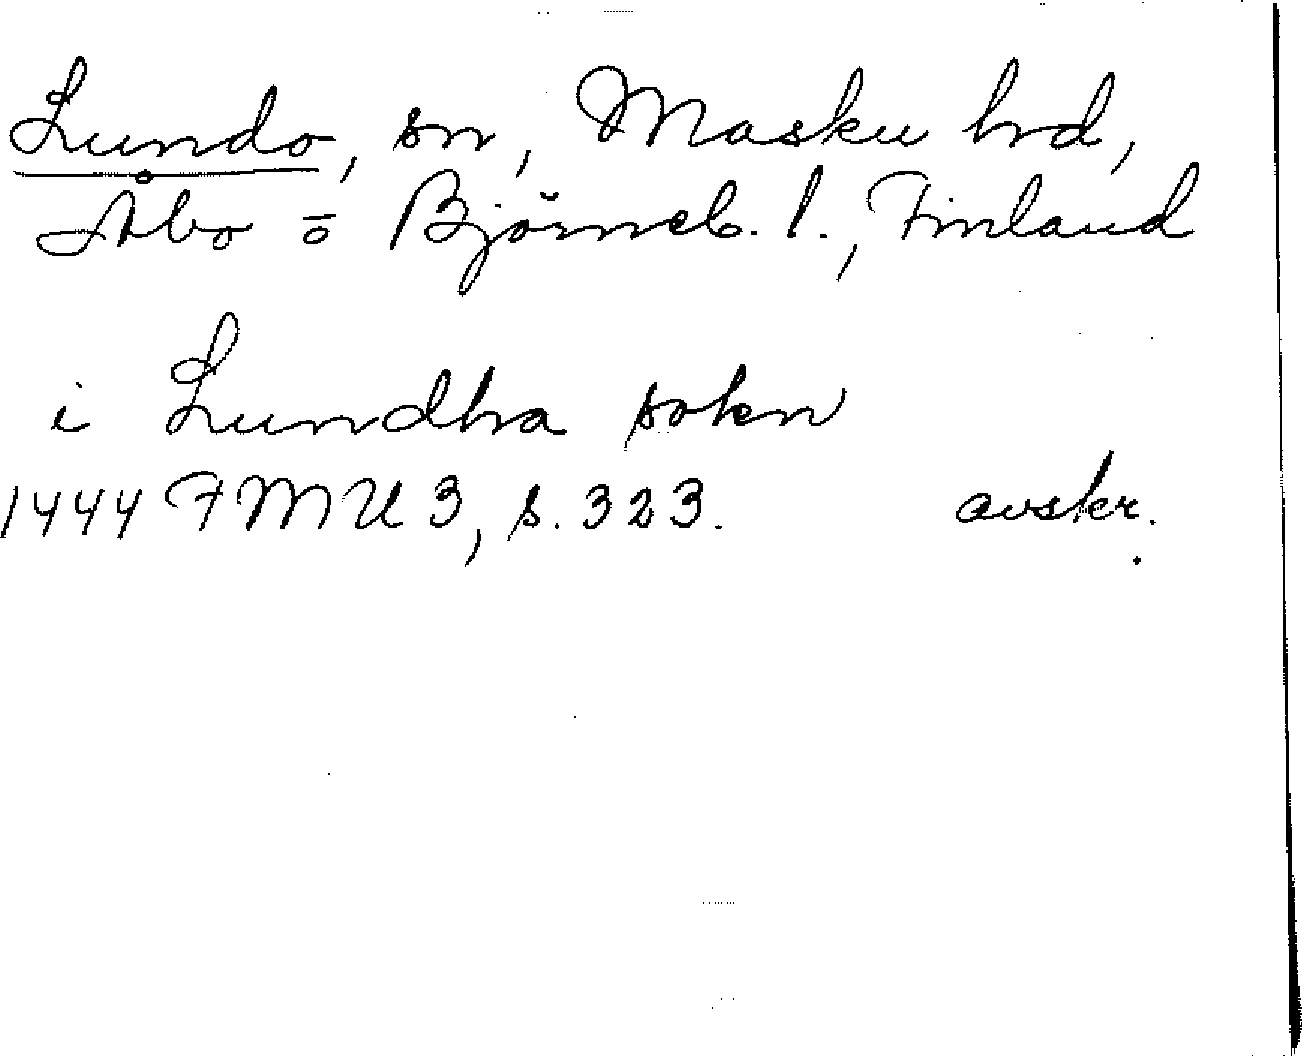 Lundo, sn, Masku hrd,
Åbo o Björneb. l., Finland
i Lundha sokn
1444 FMU 3, s. 323. avskr.